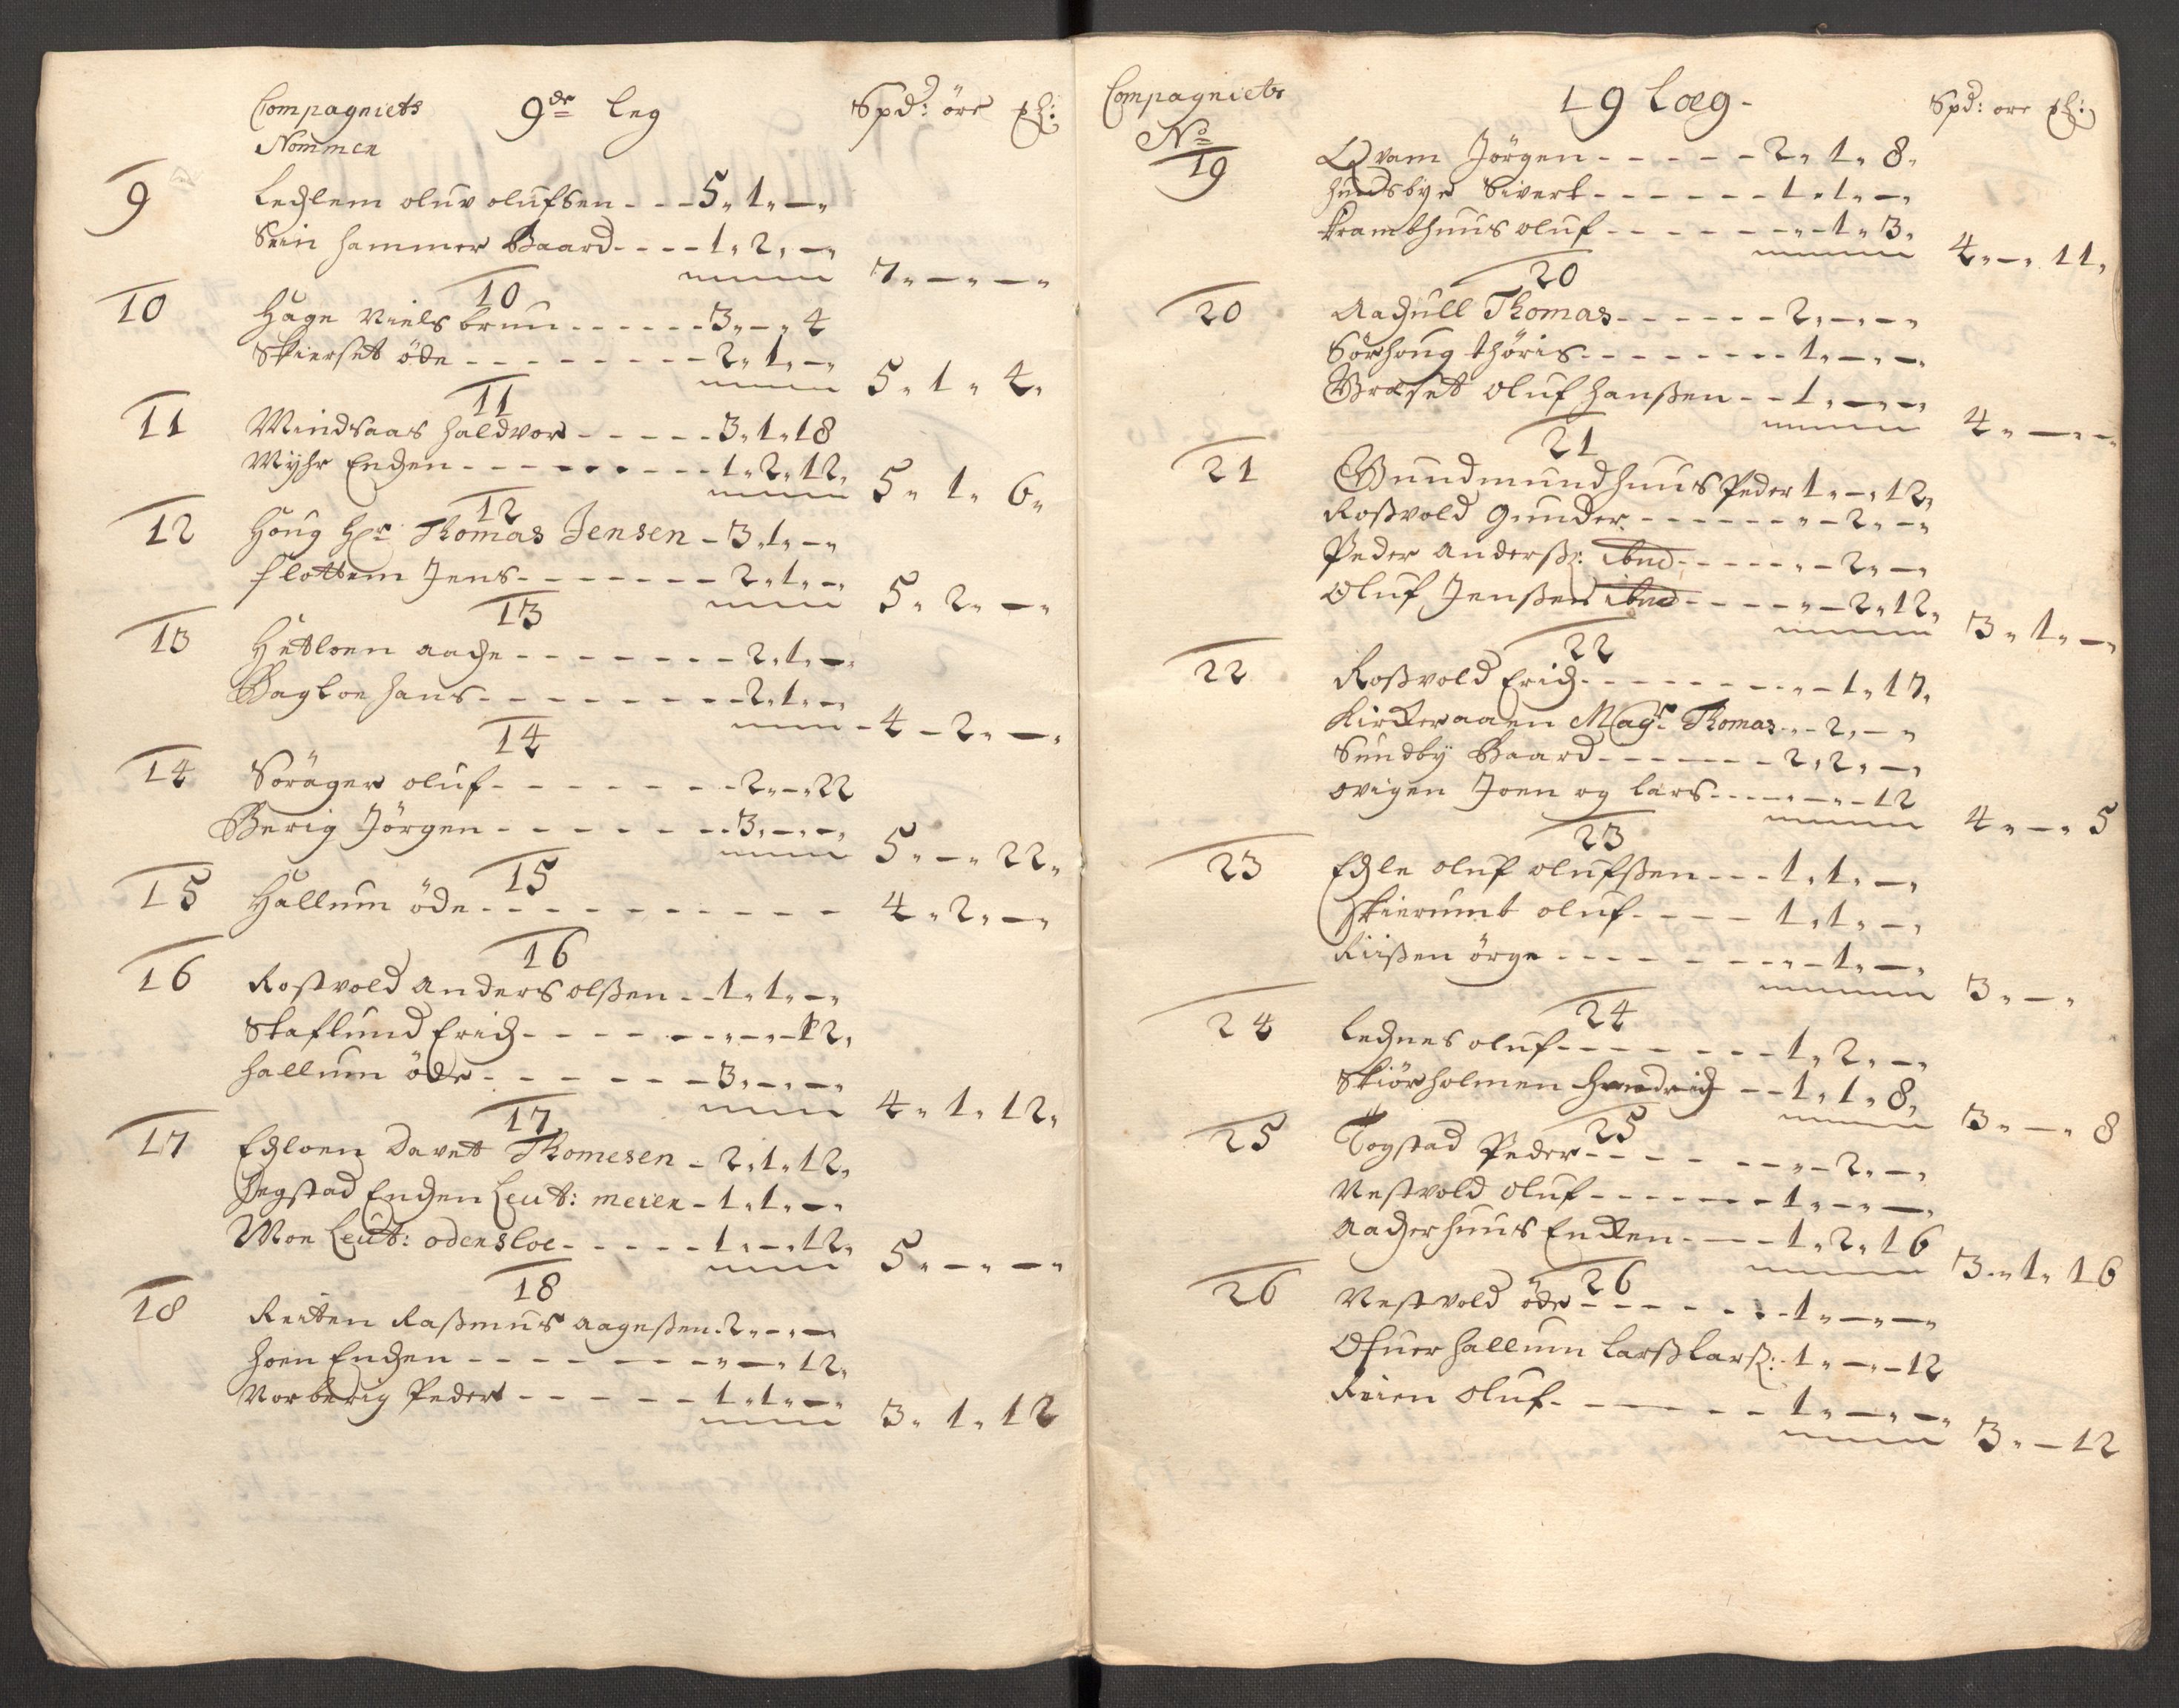 Compagniets 9de leg Spd: öre ßl:
Nommer
9 Lechlem oluv olufsen - - - 5 " 1 " - "
Svinhammer Baard - - - - 1 " 2 " - "
7 " - " - "
10
10 Hage Niels brun - - - - - - 3 " - " 4
Skierset öde - - - - - - - - 2 " 1 " - "
5 " 1 " 4 "
11
11 Mindsaas Haldvor - - - - - 3 " 1 " 18
Myhr Enchen - - - - - - - - 1 " 2 " 12 "
5 " 1 " 6 "
12
12 Houg Hr: Thomas Jensen - 3 " 1 " - "
Flottem Jens - - - - - - - 2 " 1 " - "
5 " 2 " - "
13
13 Hetloen aage - - - - - - - 2 " 1 " - "
Bagloe hans - - - - - - - - 2 " 1 " - "
- 4 - 2 " - "
14
14 Soråger oluf - - - - - - - 2 " - " 22
Berig Jörgen - - - - - - - 3 " - " - "
5 " - " 22 "
15
15 Hallum öde - - - - - - - - - - 4 " 2 " - "
16
16 Rostvold anders olßen - - 1 " 1 " - "
Skaflund Erich - - - - - - " - " - 12 "
hallum öde - - - - - - 3 " - " - "
4 " 1 " 12 "
17
17 Echloen Davet Thomesen - 2 " 1 " 12 "
Hegstad Enchen Leut: meier - 1 " 1 " - "
Moe Leut: odensloe - - - - - 1 " - " 12 "
5 " - " - "
18
18 Reiten Raßmus aageßen - 2 " - " -
hoen Enchen - - - - - - - " - " 12 "
Norberig Peder - - - - - 1 " 1 " - "
3 " 1 " 12
Compagniets 19 Læg - Spd: ore ßl:
No
19 Qvam Jörgen - - - - - 2 " 1 " 8 "
Hundsbye Sivert - - - - - - 1 " 1 " - "
kramthuus oluf - - - - - - - " - 1 " 3 "
4 " - " 11 "
20
20 Aachull Thomas - - - - - - 2 " - " - "
Sörhoug thöris - - - - - - - - 1 " - " - "
Græset oluf hanßen - - 1 " - " - "
4 " - " - "
21
21 Gundmundhuus Peder 1 " - " 12 "
Roßvold Gunder - - - - - - - " - 2 " - "
Peder anderß: ibnd - - - - - " - 2 " - "
Oluf Jenßen ibnd - - - - " - 2 " 12 "
3 " 1 " - "
22
22 Roßvold Erich - - - - - - - " - 1 " 17 "
Kirckeraaen Magr: Thomas - " - 2 " - "
Sundby Baard - - - - - - 2 " 2 " - "
ovigen Joen og Lars - - - - " - " - 12
4 " - " 5
23
23 Echle oluf olufßen - - - 1 " 1 " - "
Skierumb oluf - - - - 1 " 1 " - "
Riißen örge - - - - - - - " - 1 " - "
3 " - "
24
24 Lechnes oluf - - - - - - - 1 " 2 " - "
Skiörholmen Hendrich - - 1 " 1 " 8 "
3 " - " 8
25
25 Togstad Peder - - - - - - " - 2 " - "
Nestvold oluf - - - - - - - 1 " - " - "
Aacherhuus Encken - - - 1 " 2 " 16
3 " 1 " 16
26
26 Nestvold öde - - - - - - 1 " - " - "
Ofuer hallum Larß Larß: - 1 " - " - 12
Reien oluf - - - - - 1 " - " - "
3 " - 12